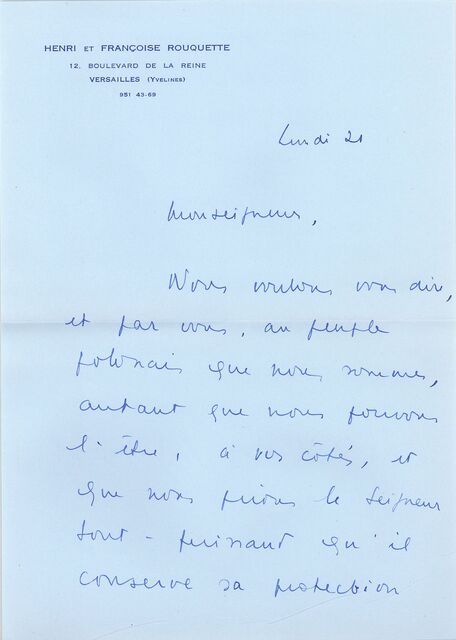 HENRI ET FRANÇOISE ROUQUETTE
12, BOULEVARD DE LA REINE
VERSAILLES (YVELINES)
951 43-69
Lundi 21
Monseigneur,
Nous voulons vous dire,
et par vous, au peuple
polonais que nous sommes,
autant que nous pouvons
l'être, à vos côtés, et
que nous prions le Seigneur
tout-puissant qu'il
conserve sa protection